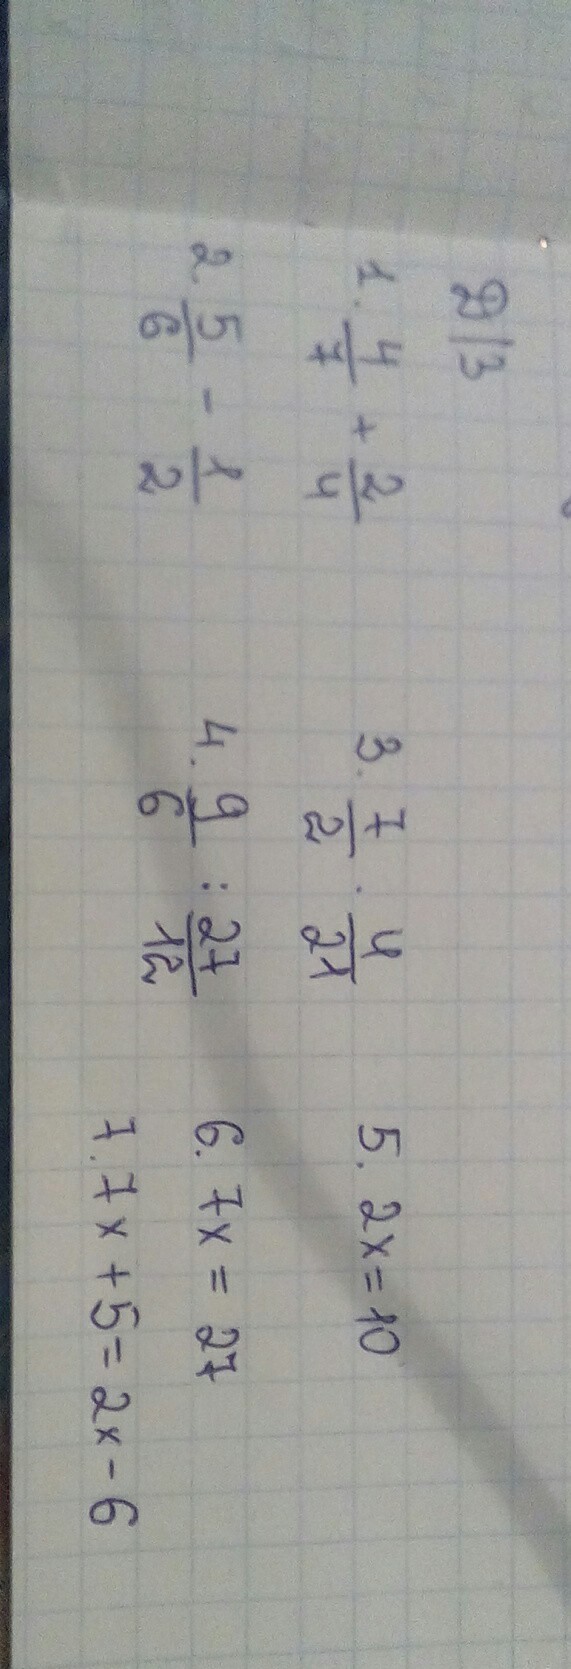 Д/З
1. 4/7 + 2/4
2. 5/6 - 1/2
3. 7/2 · 4/21
4. 9/6 : 27/12
5. 2x = 10
6. 7x = 27
7. 7x + 5 = 2x - 6